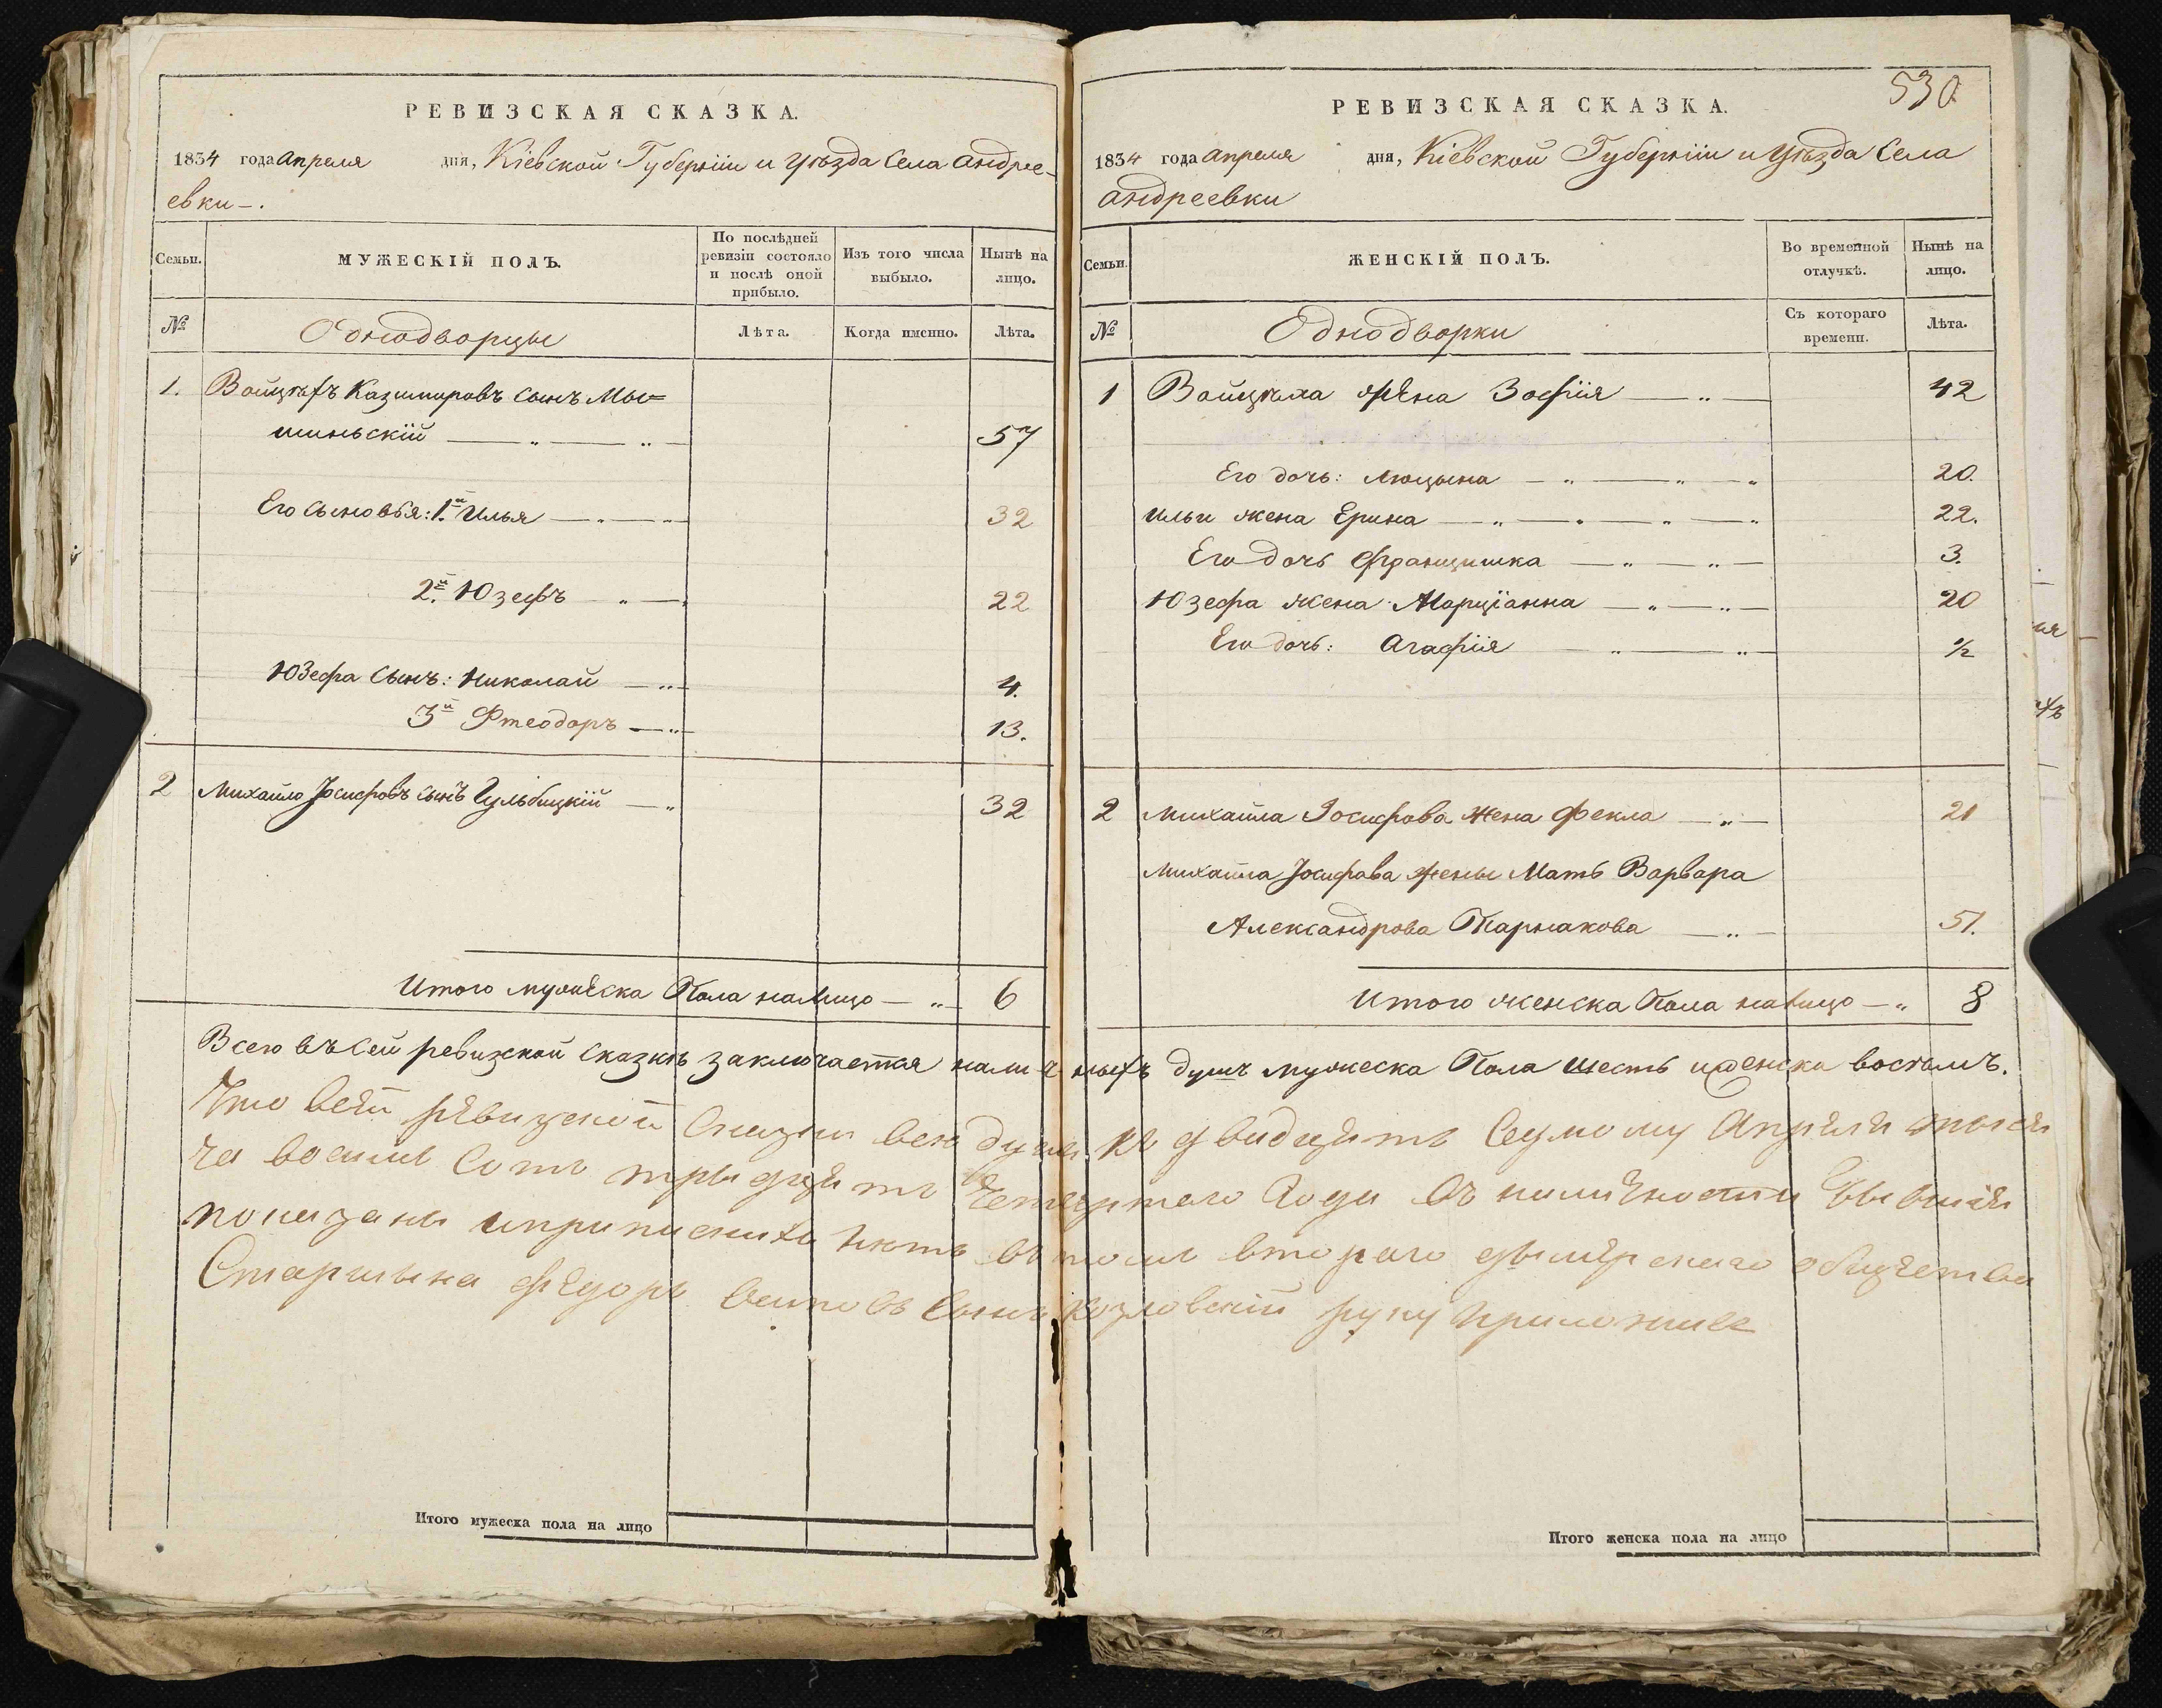 РЕВИЗСКАЯ СКАЗКА.
1834 года апреля дня, Кіевской Губерніи и уѣзда Села Андрее-
евки -.
Семьи.
МУЖЕСКІЙ ПОЛЪ.
По послѣдней ревизіи состояло и послѣ оной прибыло.
Изъ того числа выбыло.
Нынѣ на лицо.
№
Однодворцы
Лѣта.
Когда именно.
Лѣта.
1. Войцѣхъ Казимировъ сынъ Мы=
шиньскій 57
Его сыновья: 1й Илья 32
2й Юзефъ 22
Юзефа сынъ: Николай 4.
3й Фтеодоръ 13.
2 Михайло Іосифовъ сынъ Гульбицкій 32
Итого мужеска Пола налицо 6
Итого мужеска пола на лицо
530
РЕВИЗСКАЯ СКАЗКА.
1834 года апреля дня, Кіевской Губерніи и уѣзда Села
Андреевки
Семьи.
ЖЕНСКІЙ ПОЛЪ.
Во временной отлучкѣ.
Нынѣ на лицо.
№
Однодворки
Съ котораго времени.
Лѣта.
1 Войцѣха жена Зофія 42
Его дочь: Люцына 20.
Ильи жена Ерина 22.
Его дочь Францишка 3.
Юзефа жена Марціанна 20
Его дочь: Агафія ½
2 Михайла Іосифова жена Фекла 21
Михайла Іосифава жены Мать Варвара
Александрова 51.
Итого женска Пола налицо 8
Всего въ сей ревизской сказкѣ заключается наличныхъ душъ мужеска Пола шесть и женска восемъ.
Что всей ревизской сказки все души къ двадцать седмому Апреля тыся
ча восимъ сотъ тридцать четвертаго года въ наличности бывшія
показаны и прописныхъ нѣтъ въ томъ втораго дымерскаго общества
Старшына Федоръ сынъ Козловскій руку приложилъ
Итого женска пола на лицо